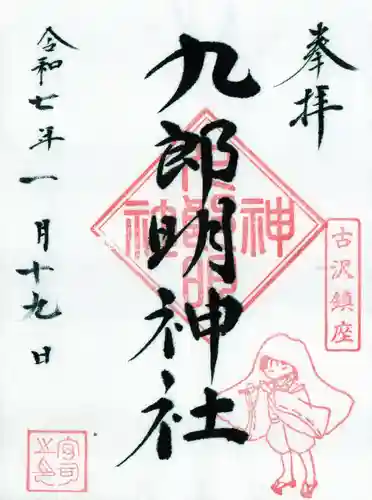 奉拝
古沢鎮座
九郎明神社
令和七年一月十九日
宮司之印